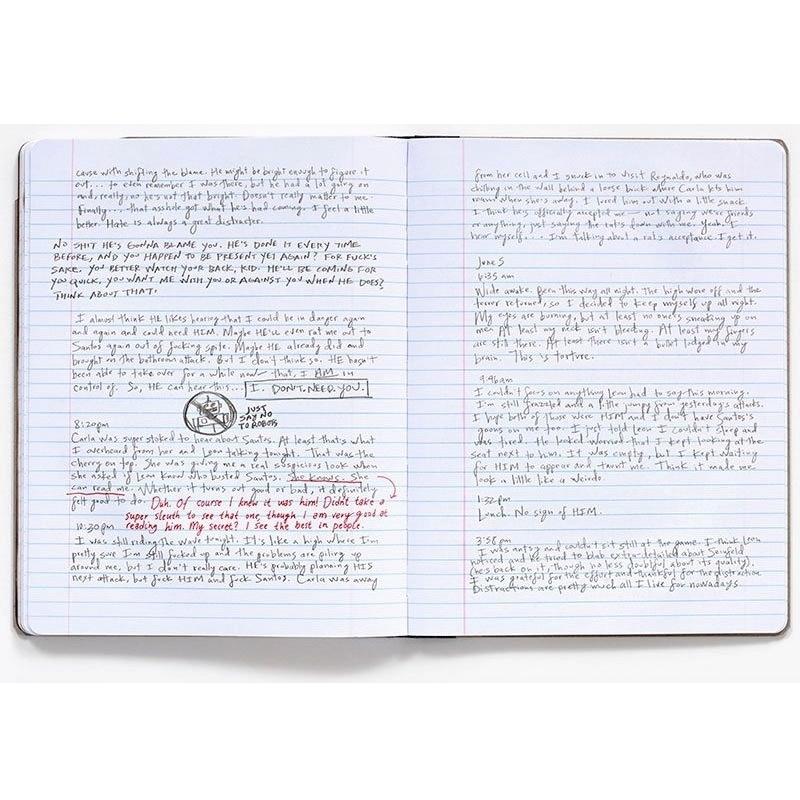 cause with shifting the blame. He might be bright enough to figure it
out... to even remember I was there, but he had a lot going on
and, really, no he's not that bright. Doesn't really matter to me.
Finally... that asshole got what he's had coming. I feel a little
better. Hate is always a great distracter.
NO SHIT HE'S GONNA BLAME YOU. HE'S DONE IT EVERY TIME
BEFORE, AND YOU HAPPEN TO BE PRESENT YET AGAIN? FOR FUCK'S
SAKE. YOU BETTER WATCH YOUR BACK, KID. HE'LL BE COMING FOR
YOU QUICK. YOU WANT ME WITH YOU OR AGAINST YOU WHEN HE DOES?
THINK ABOUT THAT.
I almost think HE likes hearing that I could be in danger again
and again and could need HIM. Maybe HE'LL even rat me out to
Santos again out of fucking spite. Maybe HE already did and
brought on the bathroom attack. But I don't think so. HE hasn't
been able to take over for a while now— that, I AM in
control of. So, HE can hear this... I. DON'T. NEED. YOU.
JUST
SAY NO
TO ROBOTS
8:20pm
Carla was super stoked to hear about Santos. At least that's what
I overheard from her and Leon talking tonight. That was the
cherry on top. She was giving me a real suspicious look when
she asked if Leon knew who busted Santos. She knows. She
can read me. Whether it turns out good or bad, it definitely
felt good to do.
Duh. Of course I knew it was him! Didn't take a
super sleuth to see that one, though I am very good at
reading him. My secret? I see the best in people.
10:30pm
I was still riding the wave tonight. It's like a high where I'm
pretty sure I'm still fucked up and the problems are piling up
around me, but I don't really care. HE's probably planning HIS
next attack, but fuck HIM and fuck Santos. Carla was away
from her cell and I snuck in to visit Reynaldo, who was
chilling in the wall behind a loose brick where Carla lets him
roam when she's away. I lured him out with a little snack.
I think he's officially accepted me — not saying we're friends
or anything, just saying the rat's down with me. Yeah. I
hear myself... I'm talking about a rat's acceptance. I get it.
June 5
6:35am
Wide awake. Been this way all night. The high wore off and the
terror returned, so I decided to keep myself up all night.
My eyes are burning, but at least no one's sneaking up on
me. At least my neck isn't bleeding. At least my fingers
are still there. At least there isn't a bullet lodged in my
brain. This is torture.
9:46am
I couldn't focus on anything Leon had to say this morning.
I'm still frazzled and a little jumpy from yesterday's attacks.
I hope both of those were HIM and I don't have Santos's
goons on me too. I just told Leon I couldn't sleep and
was tired. He looked worried that I kept looking at the
seat next to him. It was empty, but I kept waiting
for HIM to appear and taunt me. Think it made me
look a little like a weirdo.
1:32pm
Lunch. No sign of HIM.
3:56pm
I was antsy and couldn't sit still at the game. I think Leon
noticed and he tried to blab extra-detailed about Seinfeld
(he's back on it, though no less doubtful about its quality).
I was grateful for the effort and thankful for the distraction.
Distractions are pretty much all I live for nowadays.